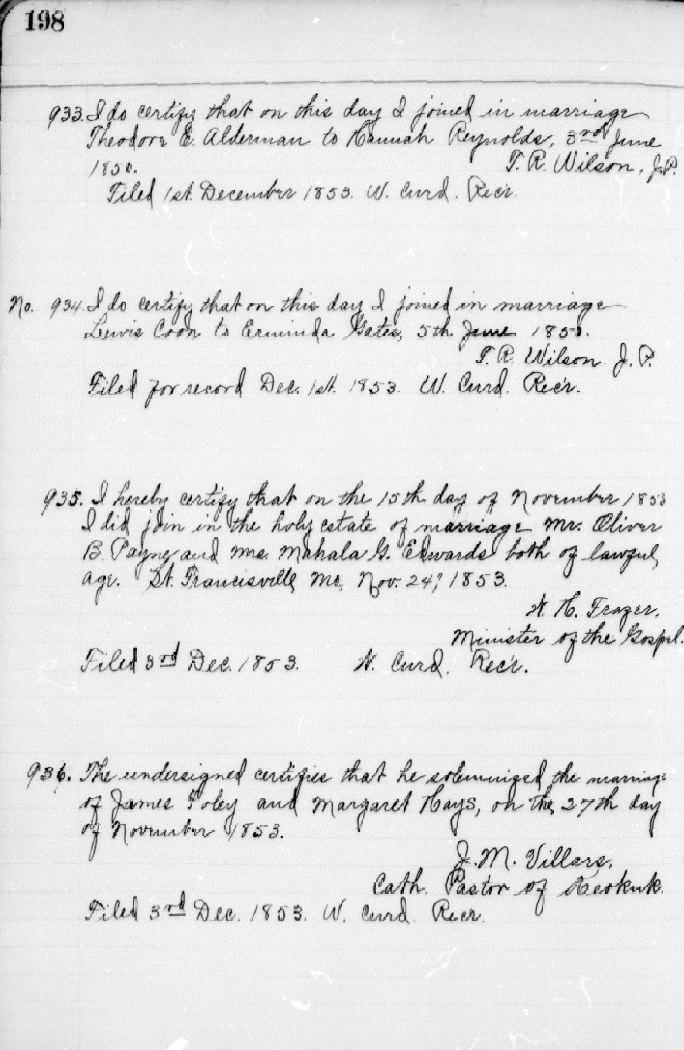 198
933. I do certify that on this day I joined in marriage
Theodore E. Alderman to Hannah Reynolds, 3rd June
1850. T. R. Wilson, J.P.
Filed 1st. December 1853. W. Curd. Rec'r.
No. 934. I do certify that on this day I joined in marriage
Lewis Coon to Erminda Gates, 5th June 1850.
T. R. Wilson J. P.
Filed for record Dec. 1st. 1853. W. Curd. Rec'r.
935. I hereby certify that on the 15th day of November 1853
I did join in the holy estate of marriage Mr. Oliver
B. Payne and Mrs. Mahala G. Edwards both of lawful
age. St. Francisville, Mo, Nov. 24, 1853.
W. H. Frazer,
Minister of the Gospel.
Filed 3rd Dec. 1853. W. Curd. Rec'r.
936. The undersigned certifies that he solemnized the marriage
of James Foley and Margaret Hays, on the 27th day
of November 1853.
J. M. Villars,
Cath. Pastor of Keokuk.
Filed 3rd Dec. 1853. W. Curd. Recr.